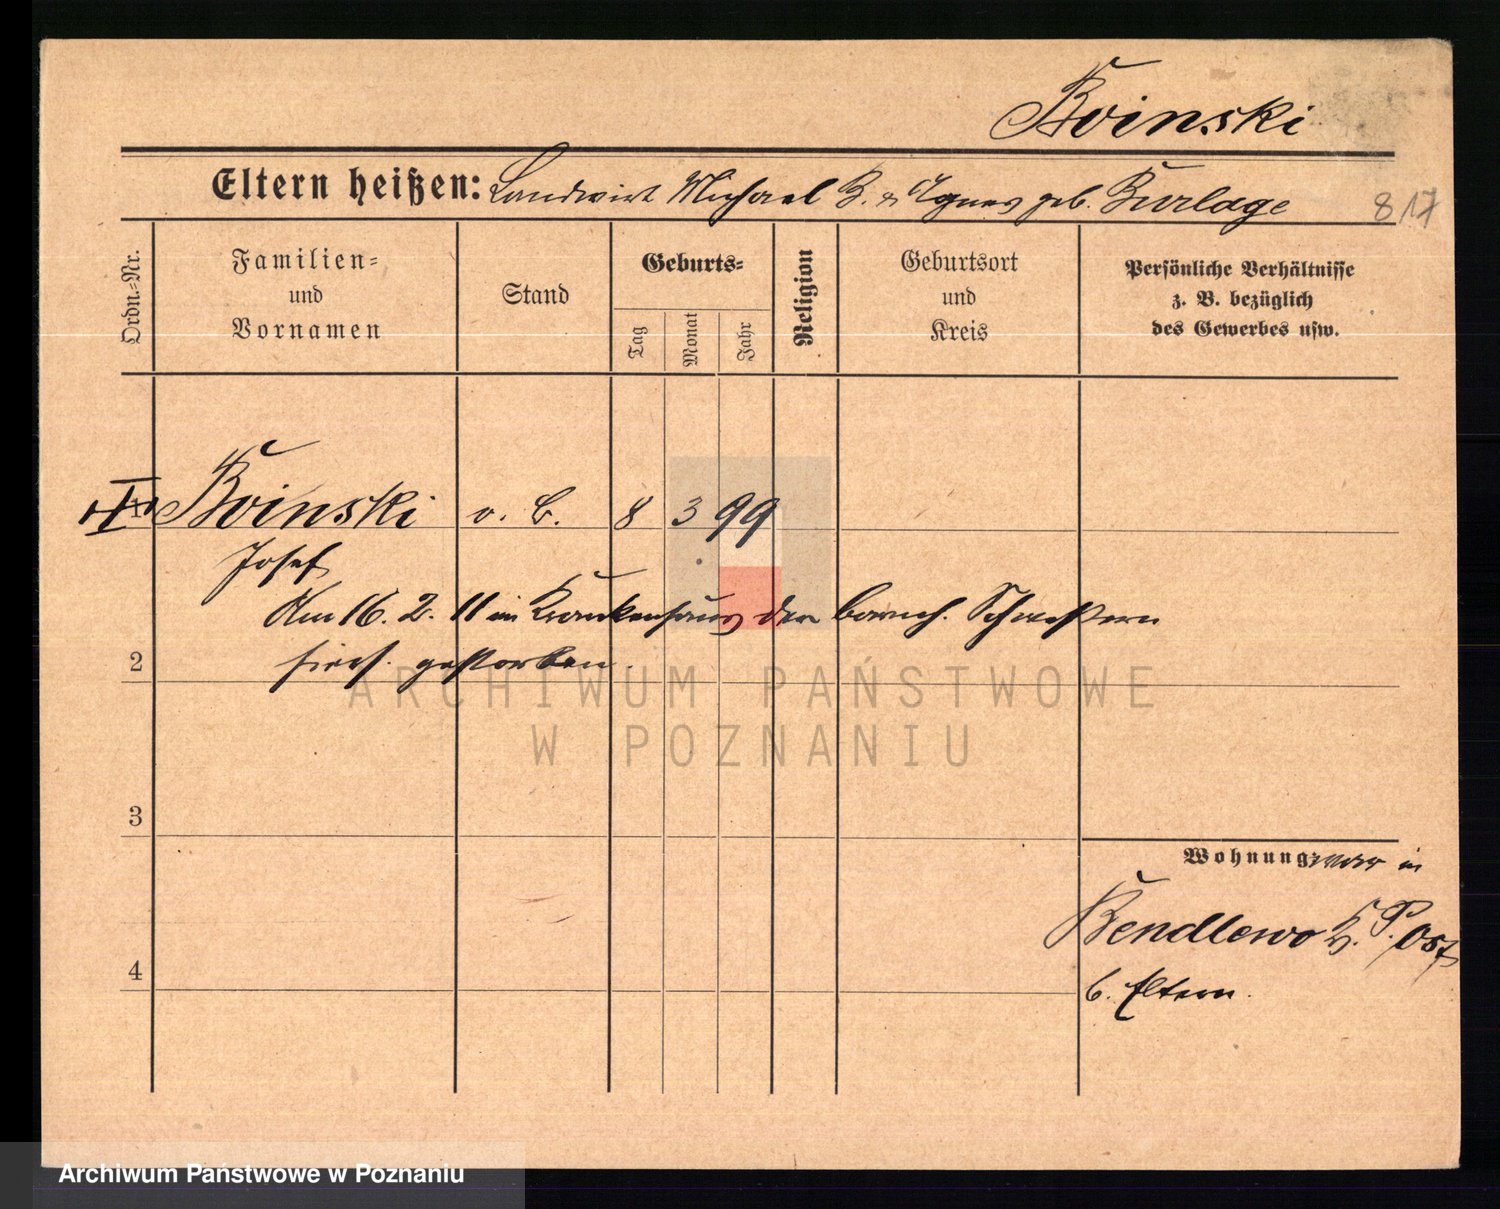 Boinski
Eltern heißen: Landwirt Michael B. & Agnes geb. Burlage
817
Ordn.-Nr.
Familien- und Vornamen
Stand
Geburts-
Tag
Monat
Jahr
Religion
Geburtsort und Kreis
Persönliche Verhältnisse z. B. bezüglich des Gewerbes usw.
Boinski o. B. 8 3 99
Josef
Am 16. 2. 11 im Krankenhaus der barmh. Schwestern
hies. gestorben.
2
3
4
Wohnung war in
Bendlewo K. P. Ost
b. Eltern.
ARCHIWUM PAŃSTWOWE
W POZNANIU
Archiwum Państwowe w Poznaniu